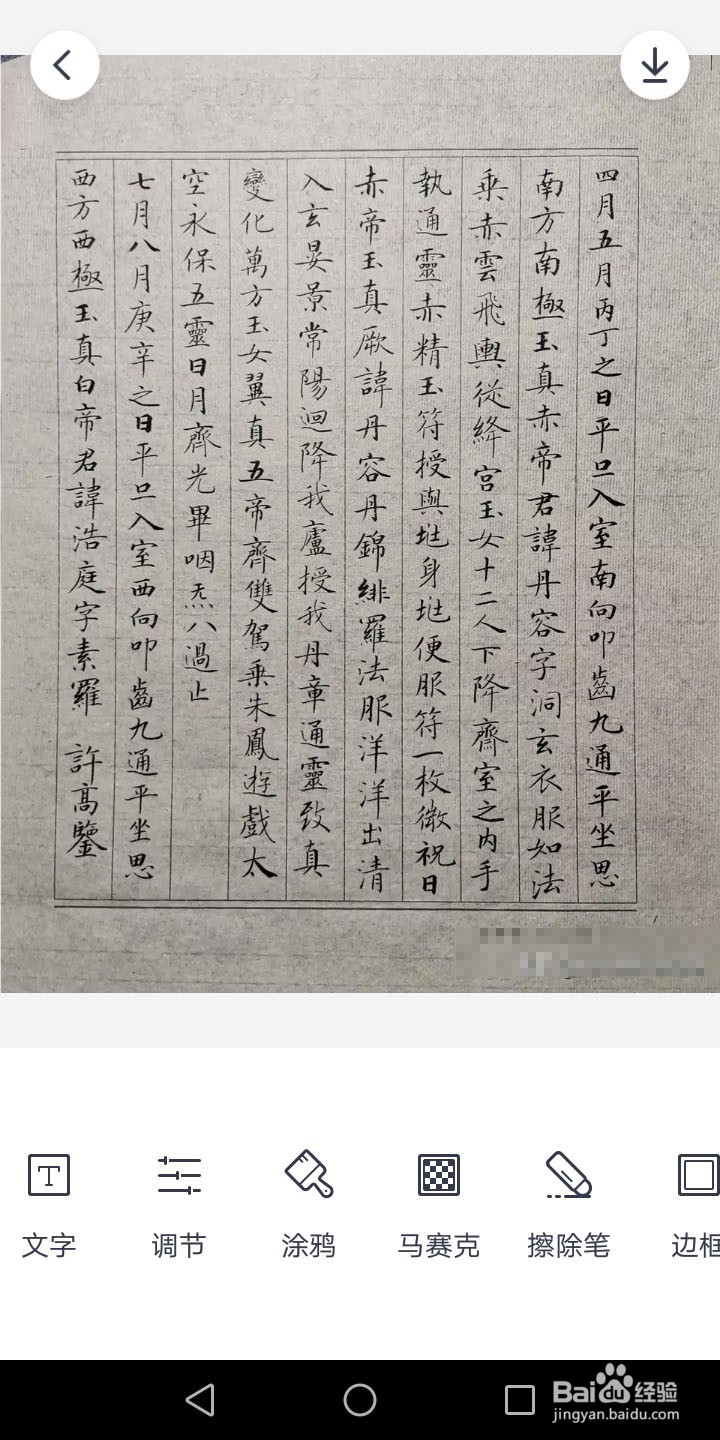 四月五月丙丁之日平旦入室南向叩齒九通平坐思
南方南極玉真赤帝君諱丹容字洞玄衣服如法
乘赤雲飛輿從絳宮玉女十二人下降齋室之内手
執通靈赤精玉符授與某身某便服符一枚微祝日
赤帝玉真厥諱丹容丹錦緋羅法服洋洋出清
入玄晏景常陽迴降我廬授我丹章通靈致真
變化萬方玉女翼真五帝齊雙駕乘朱鳳遊戲太
空永保五靈日月齊光畢咽炁八過止
七月八月庚辛之日平旦入室西向叩齒九通平坐思
西方西極玉真白帝君諱浩庭字素羅 許高鑒
文字
调节
涂鸦
马赛克
擦除笔
边框
Baidu经验
jingyan.baidu.com